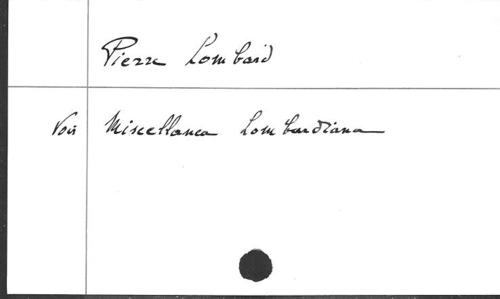 Pierre Lombard
Voir Miscellanea Lombardiana